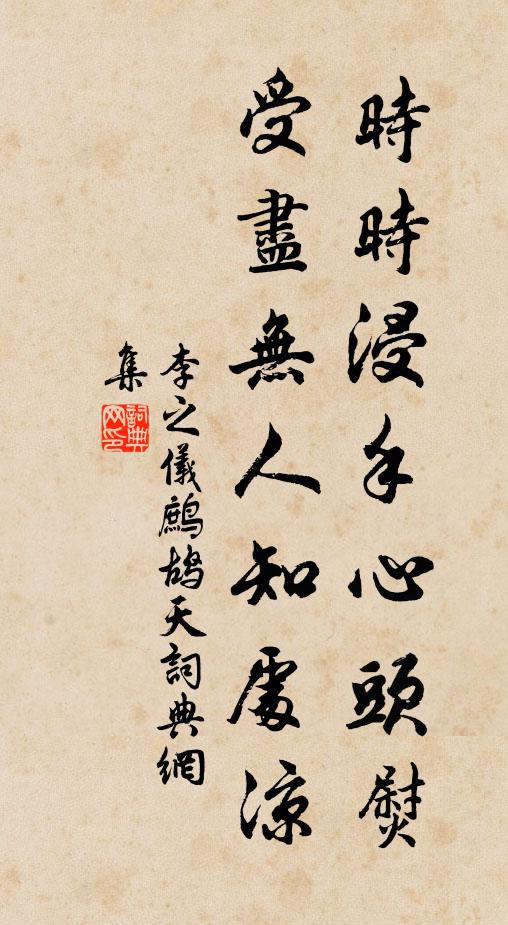 時時浸手心頭熨
受盡無人知處涼
李之儀鷓鴣天詞典網
集
詞典網印